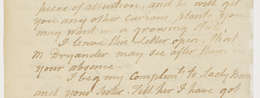 piece of attention, and he will get
you any other curious plants you
may want in a growing state.
I leave this letter open, that
Mr Dryander may see it before
your absence.
I beg my Compliments to Lady Banks
and your Sister. Tell her I have got